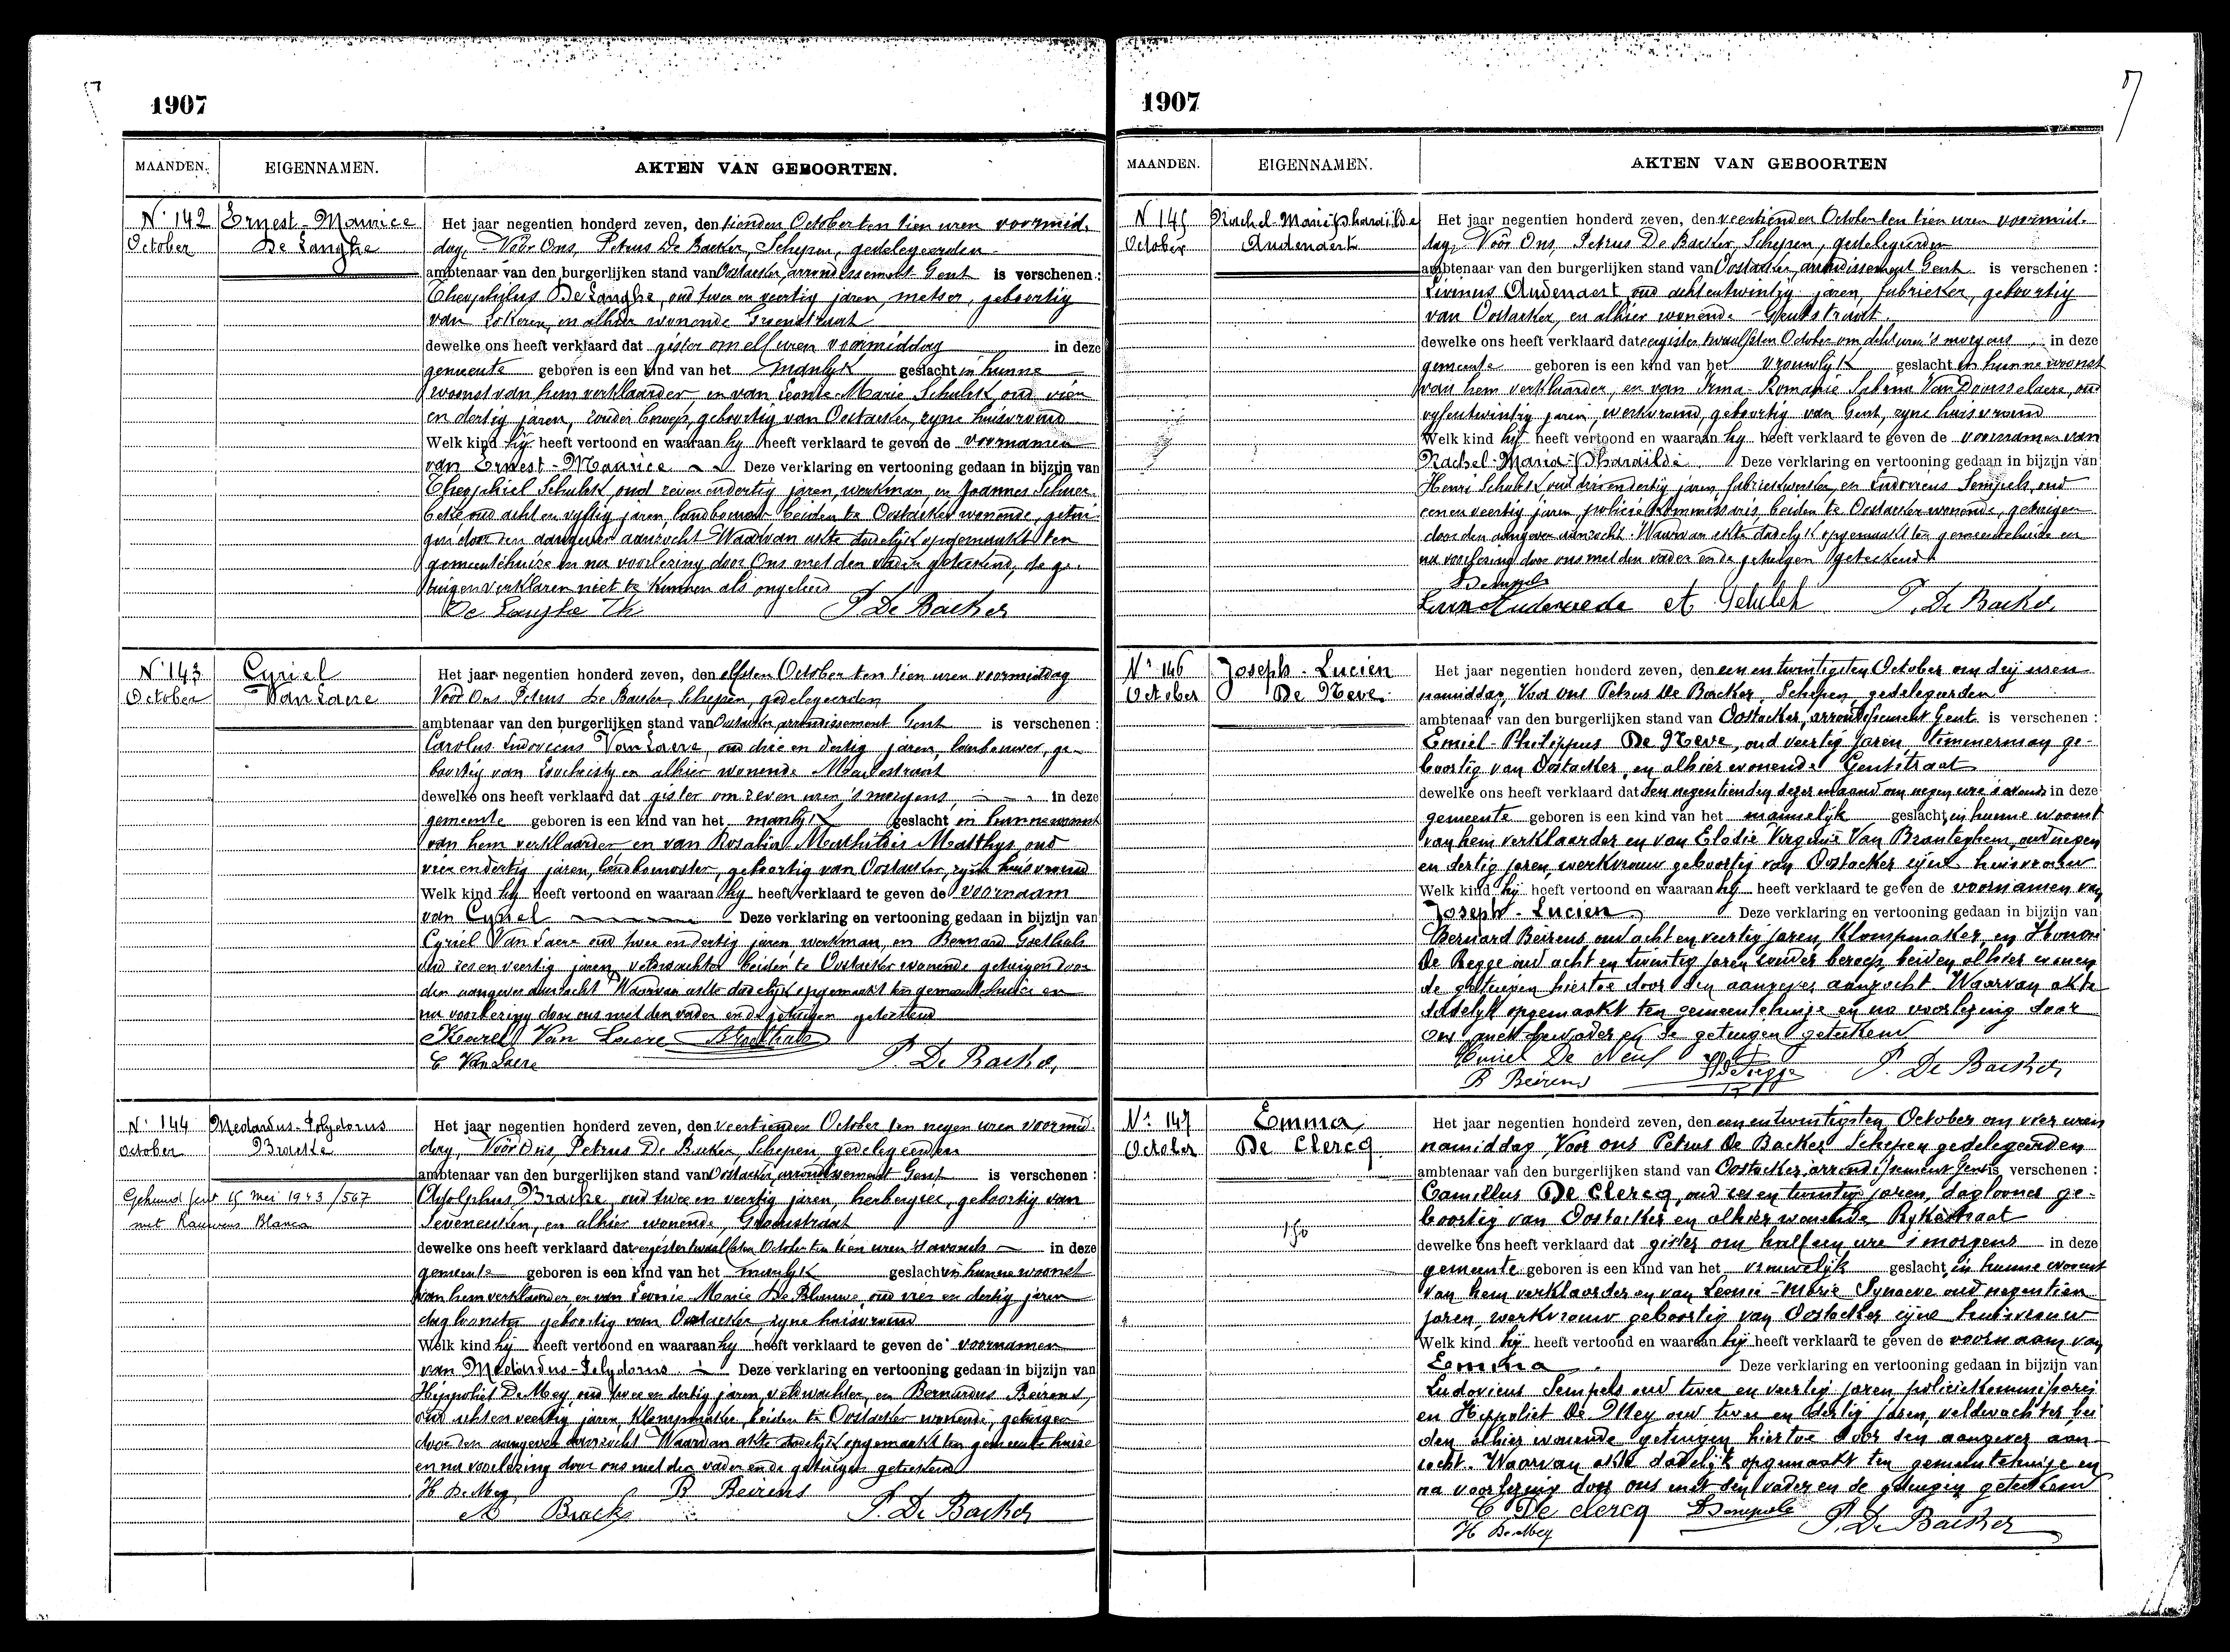 1907
MAANDEN. EIGENNAMEN. AKTEN VAN GEBOORTEN.
N. 142
October
Ernest-Maurice
De Langhe
Het jaar negentien honderd zeven, den tienden October ten tien uren voormid-
dag, Vóór Ons, Petrus De Backer, Schepen, gedelegeerden
ambtenaar van den burgerlijken stand van Oostacker, arrondissement Gent is verschenen :
Theophilus De Langhe, oud twee en veertig jaren, metser, geboortig
van Lokeren, en alhier wonende Groenstraat
dewelke ons heeft verklaard dat gister om elf uren voormiddag in deze
gemeente geboren is een kind van het manlyk geslacht in hunne
woonst van hem verklaarder en van Leonie-Marie Schulsk, oud vier
en dertig jaren, zonder beroep, geboortig van Oostacker, zyne huisvrouw
Welk kind hij heeft vertoond en waaraan hy heeft verklaard te geven de voornamen
van Ernest-Maurice Deze verklaring en vertooning gedaan in bijzijn van
Theophiel Schulsk, oud zeven en dertig jaren, werkman, en Joannes
oud acht en vyftig jaren, landbouwer beiden te Oostacker wonende, getui-
gen door den aangever aanzocht Waarvan akte dadelijk opgemaakt ten
gemeentehuize en na voorlezing door Ons met den vader geteekend, de ge-
tuigen verklaren niet te kunnen als ongeleerd
De Langhe Th P. De Backer
N. 143
October
Cyriel
Van Laere
Het jaar negentien honderd zeven, den elfsten October ten tien uren voormiddag
Vóór Ons Petrus De Backer, Schepen, gedelegeerden
ambtenaar van den burgerlijken stand van Oostacker, arrondissement Gent is verschenen :
Carolus Ludovicus Van Laere, oud drie en dertig jaren, landbouwer, ge-
boortig van Loochristy en alhier wonende Meulestraat
dewelke ons heeft verklaard dat gister om zeven uren 's morgens, in deze
gemeente geboren is een kind van het manlyk geslacht in hunne woonst
van hem verklaarder en van Rosalia Mathildis Matthys, oud
vier en dertig jaren, landbouwster, geboortig van Oostacker, zyne huisvrouw
Welk kind hy heeft vertoond en waaraan hy heeft verklaard te geven de voornaam
van Cyriel Deze verklaring en vertooning gedaan in bijzijn van
Cyriel Van Laere oud twee en dertig jaren, werkman, en Bernard Goethals
oud zes en veertig jaren, veldwachter beiden te Oostacker wonende getuigen door
den aangever aanzocht Waarvan akte dadelijk opgemaakt ten gemeentehuize en
na voorlezing door ons met den vader en de getuigen geteekend
Karel Van Laere B Goethals
C Van Laere P. De Backer
N. 144
October
Medardus-Polydorus
Bracke
Gehuwd Gent 15 Mei 1943/567
met Rauwens Blanca
Het jaar negentien honderd zeven, den veertienden October ten negen uren voormid-
dag, Vóór Ons, Petrus De Backer, Schepen, gedelegeerden
ambtenaar van den burgerlijken stand van Oostacker, arrondissement Gent is verschenen :
Adolphus Bracke, oud twee en veertig jaren, herbergier, geboortig van
Seveneeken, en alhier wonende, Groenstraat
dewelke ons heeft verklaard dat eergister twaalfsten October ten tien uren 's avonds in deze
gemeente geboren is een kind van het manlyk geslacht in hunne woonst
van hem verklaarder, en van Leonie Marie De Blauwe, oud vier en dertig jaren
dagloonster geboortig van Oostacker, zyne huisvrouw
Welk kind hij heeft vertoond en waaraan hy heeft verklaard te geven de voornamen
van Medardus-Polydorus Deze verklaring en vertooning gedaan in bijzijn van
Hippoliet De Mey, oud twee en dertig jaren, veldwachter, en Bernardus Beirens,
oud acht en veertig jaren, Klompmaker, beiden te Oostacker wonende, getuigen
door den aangever aanzocht Waarvan akte dadelijk opgemaakt ten gemeentehuize
en na voorlezing door ons met den vader en de getuigen geteekend
H De Mey B Beirens
Bracke P. De Backer
1907
MAANDEN. EIGENNAMEN. AKTEN VAN GEBOORTEN
N 145
October
Rachel-Maria-Pharaïlde
Audenaert
Het jaar negentien honderd zeven, den veertienden October ten tien uren voormid-
dag, Vóór Ons, Petrus De Backer, Schepen, gedelegeerden
ambtenaar van den burgerlijken stand van Oostacker, arrondissement Gent is verschenen :
Livinus Audenaert, oud acht en twintig jaren, fabrieker, geboortig
van Oostacker, en alhier wonende Gentstraat.
dewelke ons heeft verklaard dat eergister twaalfsten October om acht uren 's morgens, in deze
gemeente geboren is een kind van het vrouwlyk geslacht in hunne woonst
van hem verklaarder, en van Irma-Romanie Van Doorsselaere, oud
vyfentwintig jaren, werkvrouw, geboortig van Gent, zyne huisvrouw
Welk kind hij heeft vertoond en waaraan hy heeft verklaard te geven de voornamen van
Rachel-Maria-Pharaïlde Deze verklaring en vertooning gedaan in bijzijn van
Henri Schulsk oud drie en dertig jaren, fabriekwerker, en Ludovicus Sempels, oud
een en veertig jaren, policie Kommissaris beiden te Oostacker wonende, getuigen
door den aangever aanzocht. Waarvan akte dadelyk opgemaakt ten gemeentehuize en
na voorlezing door ons met den vader en de getuigen geteekend
Sempels
P. De Backer
N. 146
October
Joseph-Lucien
De Neve
Het jaar negentien honderd zeven, den een en twintigsten October om drij uren
namiddag, Voor ons Petrus De Backer, Schepen, gedelegeerden
ambtenaar van den burgerlijken stand van Oostacker, arrondissement Gent is verschenen :
Emiel-Philippus De Neve, oud veertig jaren, timmerman ge-
boortig van Oostacker, en alhier wonende Gentstraat
dewelke ons heeft verklaard dat den negentienden dezer maand om negen ure 's avonds in deze
gemeente geboren is een kind van het mannelijk geslacht, in hunne woonst
van hem verklaarder en van Elodie Virginie Van Branteghem, oud negen
en dertig jaren, werkvrouw geboortig van Oostacker zijne huisvrouw
Welk kind hij heeft vertoond en waaraan hij heeft verklaard te geven de voornamen van
Joseph-Lucien Deze verklaring en vertooning gedaan in bijzijn van
Bernard Beirens oud acht en veertig jaren Klompmaker, en Honoré
De Regge oud acht en twintig jaren zonder beroep, beiden alhier wonen-
de getuigen hiertoe door den aangever aanzocht. Waarvan akte
dadelyk opgemaakt ten gemeentehuize en na voorlezing door
ons met den vader en de getuigen geteekend
Emiel De Neve H De Regge P. De Backer
B Beirens
N. 147
October
Emma
De Clercq
150
Het jaar negentien honderd zeven, den een en twintigsten October om vier uren
namiddag Voor ons Petrus De Backer Schepen gedelegeerden
ambtenaar van den burgerlijken stand van Oostacker, arrondissement Gent is verschenen :
Camillus De Clercq, oud zes en twintig jaren, daglooner ge-
boortig van Oostacker en alhier wonende Rykestraat
dewelke ons heeft verklaard dat gister om half een ure 's morgens in deze
gemeente geboren is een kind van het vrouwelijk geslacht, in hunne woonst
van hem verklaarder en van Leonie-Marie Synaeve oud negentien
jaren, werkvrouw geboortig van Oostacker zijne huisvrouw
Welk kind hij heeft vertoond en waaraan hij heeft verklaard te geven de voornaam van
Emma Deze verklaring en vertooning gedaan in bijzijn van
Ludovicus Sempels oud twee en veertig jaren policiekommissaris
en Hippoliet De Mey oud twee en dertig jaren, veldwachter, bei
den alhier wonende getuigen hiertoe door den aangever aan-
zocht. Waarvan akte dadelijk opgemaakt ten gemeentehuize en
na voorlezing door ons met den vader en de getuigen geteekend
C De clercq Sempels P. De Backer
H De Mey